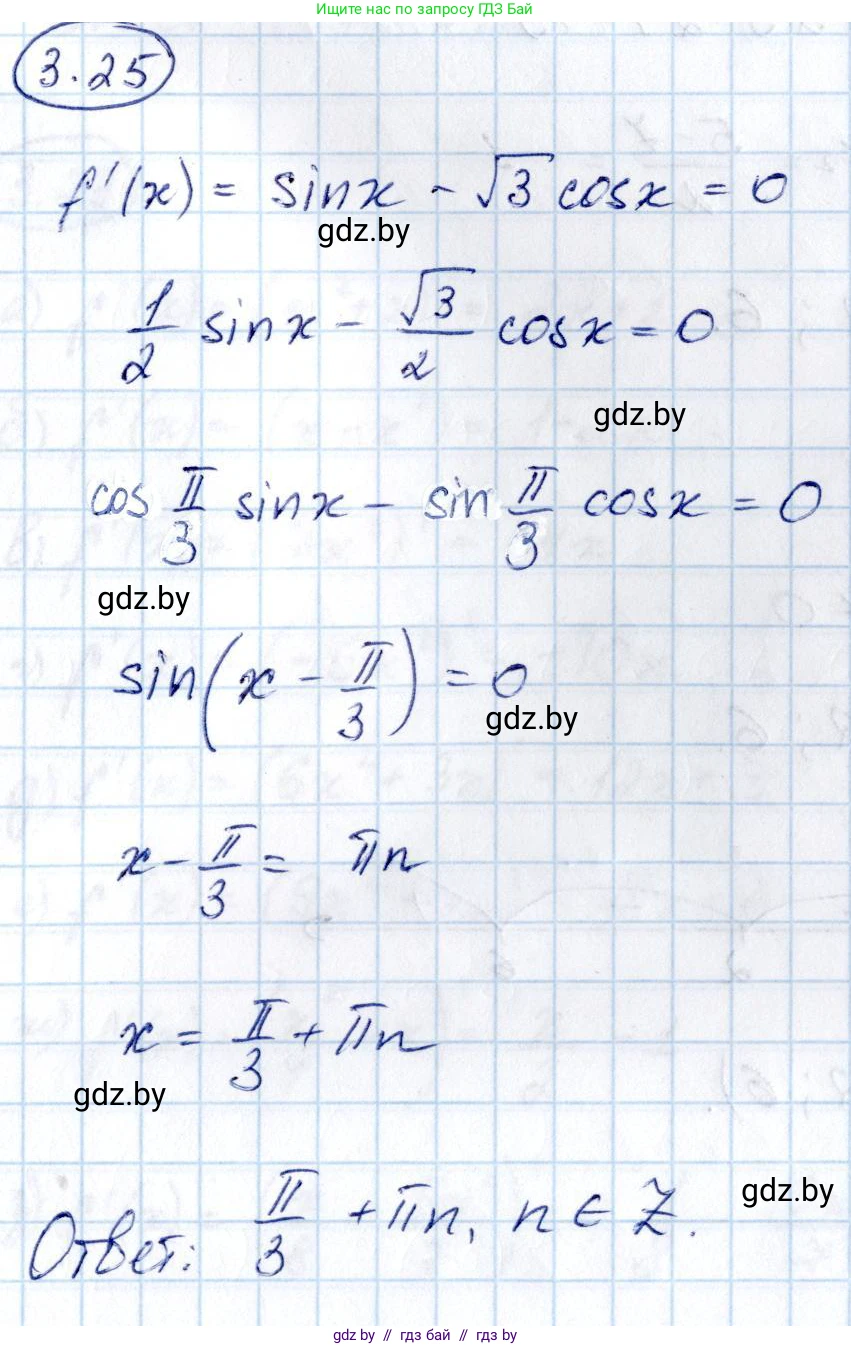 Ищите нас по запросу ГДЗ Бай
3.25
f'(x) = sinx - √3 cosx = 0
gdz.by
1/2 sinx - √3/2 cosx = 0
gdz.by
cos π/3 sinx - sin π/3 cosx = 0
gdz.by
sin(x - π/3) = 0
gdz.by
x - π/3 = πn
x = π/3 + πn
gdz.by
gdz.by
Ответ: π/3 + πn, n ∈ Z.
gdz.by // гдз бай // гдз by